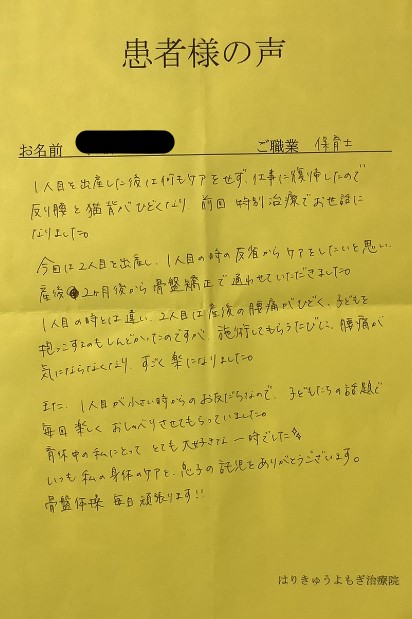 患者様の声
お名前 ご職業 保育士
1人目を出産した後は何もケアをせず、仕事に復帰したので
反り腰と猫背がひどくなり 前回 特別治療でお世話に
なりました。
今回は2人目を出産し、1人目の時の反省からケアをしたいと思い、
産後2ヶ月後から骨盤矯正で通わせていただきました。
1人目の時とは違い、2人目は産後の腰痛がひどく、子どもを
抱っこするのもしんどかったのですが、施術してもらうたびに、腰痛が
気にならなくなり、すごく楽になりました。
また、1人目が小さい時からのお友だちなので、子どもたちの話題で
毎回楽しく おしゃべりさせてもらっていました。
育休中の私にとって とても大好きな 一時でした
いつも私の身体のケアと、息子の託児をありがとうございます。
骨盤体操 毎日頑張ります!!
はりきゅうよもぎ治療院